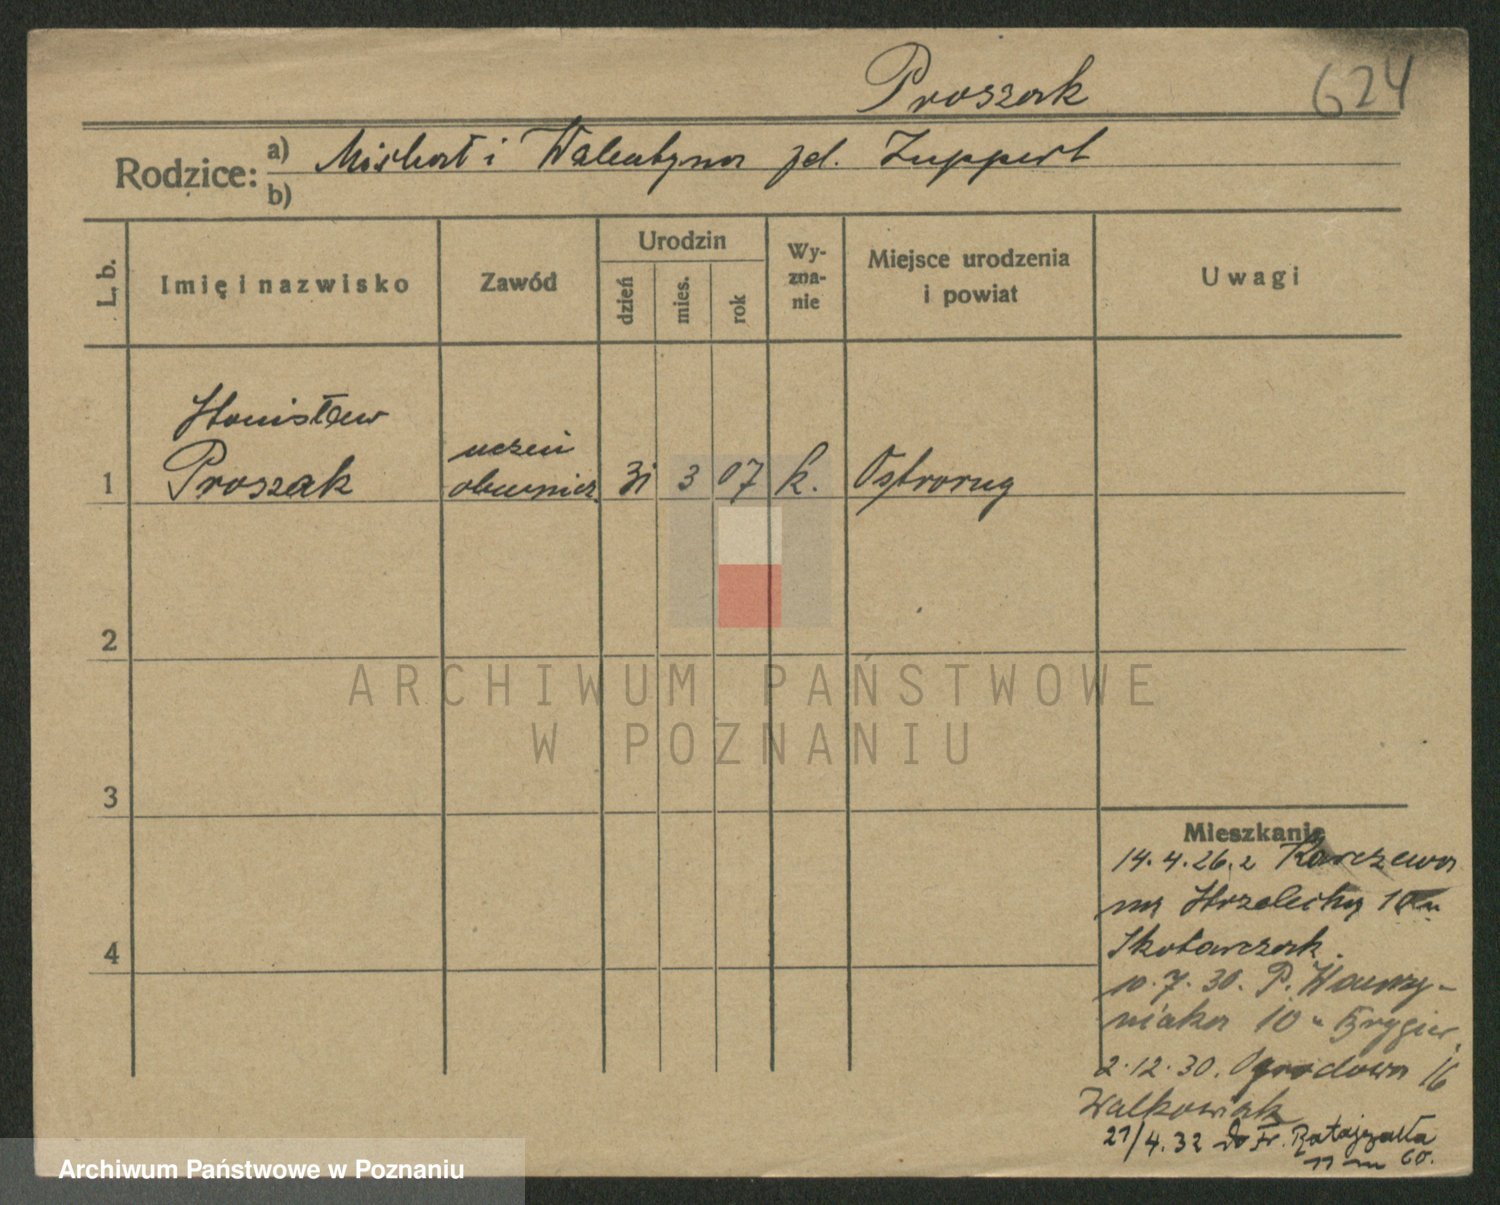 Proszak
624
Rodzice: a) Michał i Walentyna zd. Zuppert
b)
L. b.
Imię i nazwisko
Zawód
Urodzin
dzień
mies.
rok
Wy-
zna-
nie
Miejsce urodzenia
i powiat
Uwagi
Stanisław
uczeń
1 Proszak obuwnicz. 31 3 07 k. Ostroróg
2
ARCHIWUM PAŃSTWOWE
W POZNANIU
3
Mieszkanie
14.4.26. z Karczewa
na Strzelecką
Skotarczak.
4
10.7.30. P. Wawrzy-
niaka 10 u Brygier
2.12.30. Ogrodowa 16
Walkowiak
21/4.32 do Fr. Ratajczaka
11 m 60.
Archiwum Państwowe w Poznaniu